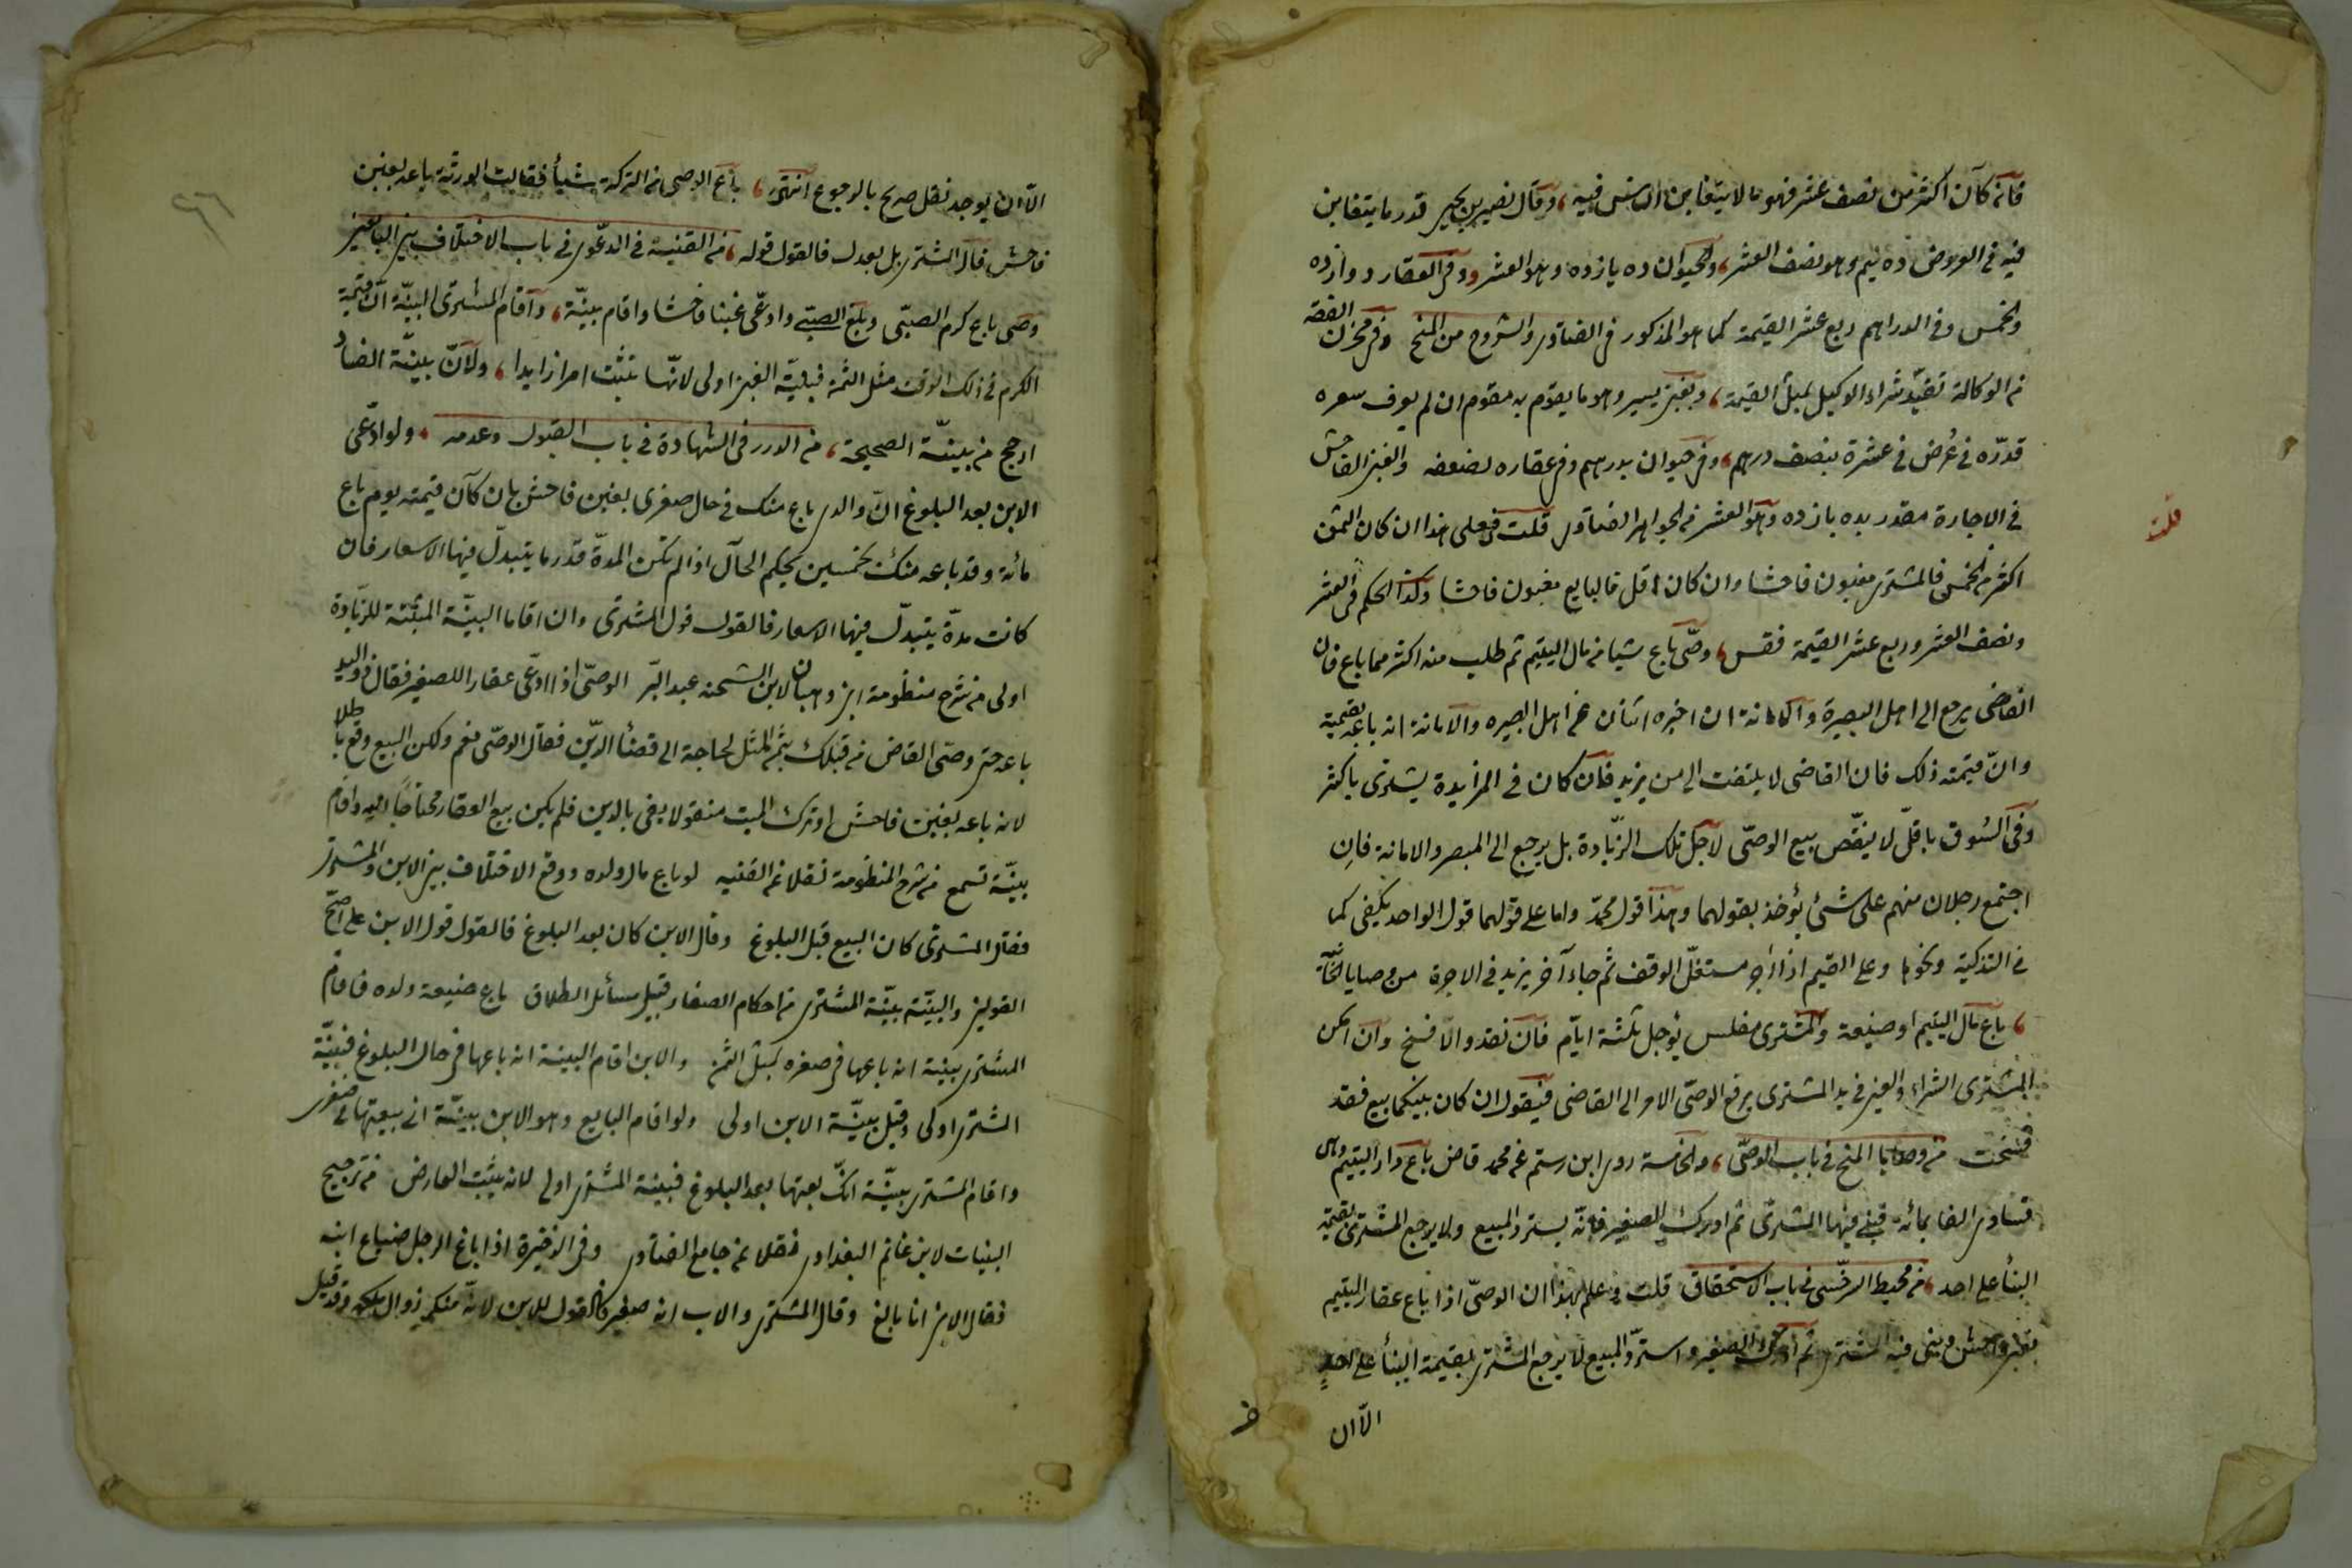 فانه كان اكثر من نصف عشر فهو ما لا يتغابن الناس فيه وقال نصير بن يحيى قدر ما يتغابن
فيه فى العروض ده نيم وهو نصف العشر والحيوان ده يازده وهو العشر وفى العقار دوازده
والخمس وفى الدراهم ربع عشر القيمة كما هو المذكور فى الفتاوى والشروح من المنح وفى مخزن الفقه
من الوكالة تقيد شراء الوكيل بمثل القيمة وبغبن يسير وهو ما يقوم به مقوم ان لم يعرف سعره
قدره فى عرض فى عشرة بنصف درهم وفى حيوان بدرهم وفى عقاره لضعفه والغبن الفاحش
فى الاجارة مقدر بده يازده وهو العشر من الجواهر الفتاوى قلت فعلى هذا ان كان الثمن
اكثر من الخمس فالمشترى مغبون فاحشا وان كان اقل فالبايع مغبون فاحشا وكذا الحكم فى العشر
ونصف العشر وربع عشر القيمة فقس وصى باع شيا من مال اليتيم ثم طلب منه اكثر مما باع فان
القاضى يرجع الى اهل البصيرة والامانة ان اخبره اثنان من اهل البصيره والامانة انه باعه بقيمته
وان قيمته ذلك فان القاضى لا يلتفت الى من يزيد فان كان فى المزايدة يشترى باكثر
وفى السوق باقل لا ينقض بيع الوصى لاجل تلك الزيادة بل يرجع الى المبصر والامانة فان
اجتمع رجلان منهم على شئ يؤخذ بقولهما وهذا قول محمد واما على قولهما قول الواحد يكفى كما
فى التزكية ونحوها وعلى القيم اذا اجر مستغل الوقف ثم جاء آخر يزيد فى الاجرة من وصايا الخانية
باع مال اليتيم او ضيعة والمشترى مفلس يؤجل ثلثة ايام فان نقد والا فسخ وان انكر
المشترى الشراء والعين فى يد المشترى يرفع الوصى الامر الى القاضى فيقول ان كان بينكما بيع فقد
فسخت من وصايا المنح فى باب الوصى والخامسة روى ابن رستم عن محمد قاض باع دار اليتيم وهى
تساوى الفا بمائة فبنى فيها المشترى ثم ادرك الصغير فانه يسترد المبيع ولا يرجع المشترى بقيمة
البنأ على احد من محيط السرخسى فى باب الاستحقاق قلت وعلم بهذا ان الوصى اذا باع عقار اليتيم
بغبن فاحش وبنى فيه المشترى ثم ادرك الصغير واسترد المبيع لا يرجع المشترى بقيمة البنأ على احد
الا ان
قلت
الا ان يوجد نقل صريح بالرجوع انتهى باع الوصى من التركة شيأ فقالت الورثة باعه بغبن
فاحش قال المشترى بل بعدل فالقول قوله من القنية فى الدعوى فى باب الاختلاف بين البايعين
وصى باع كرم الصبى وبلغ الصبى وادعى غبنا فاحشا واقام بينة واقام المشترى البينة ان قيمة
الكرم فى ذلك الوقت مثل الثمن فبينة الغبن اولى لانها تثبت امرا زايدا ولان بينة الفساد
ارجح من بينة الصحيحة من الدرر فى الشهادة فى باب القبول وعدمه ولو ادعى
الابن بعد البلوغ ان والدى باع منك فى حال صغرى بغبن فاحش بان كان قيمته يوم باع
مائة وقد باعه منك بخمسين يحكم الحال اذا لم تكن المدة قدر ما يتبدل فيها الاسعار فان
كانت مدة يتبدل فيها الاسعار فالقول قول المشترى وان اقاما البينة المثبتة للزيادة
اولى من شرح منظومة ابن وهبان لابن الشحنه عبد البر الوصى اذا ادعى عقارا للصغير فقال ذو اليد
باعه حتى وصى القاضى من قبلك بثمن المثل لحاجة الى قضأ الدين فقال الوصى نعم ولكن البيع وقع باطلا
لانه باعه بغبن فاحش او ترك الميت منقولا يفى بالدين فلم يكن بيع العقار محتاجا اليه واقام
بينة تسمع من شرح المنظومة نقلا عن القنيه لو باع مال ولده ووقع الاختلاف بين الابن والمشترى
فقال المشترى كان البيع قبل البلوغ وقال الابن كان بعد البلوغ فالقول قول الابن على اصح
القولين والبينة بينة المشترى من احكام الصغار قبيل مسائل الطلاق باع ضيعة ولده فاقام
المشترى بينة انه باعها فى صغره بمثل الثمن والابن اقام البينة انه باعها فى حال البلوغ فبينة
المشترى اولى وقيل بينة الابن اولى ولو اقام البايع وهو الابن بينة انى بيعتها فى صغرى
واقام المشترى بينة انك بعتها بعد البلوغ فبينة المشترى اولى لانه يثبت العارض من ترجيح
البينات لابن غانم البغدادى نقلا عن جامع الفتاوى وفى الذخيرة اذا باع الرجل ضياع ابنه
فقال الابن انا بالغ وقال المشترى والاب انه صغير فالقول للابن لانه منكر زوال ملكه وقد قيل